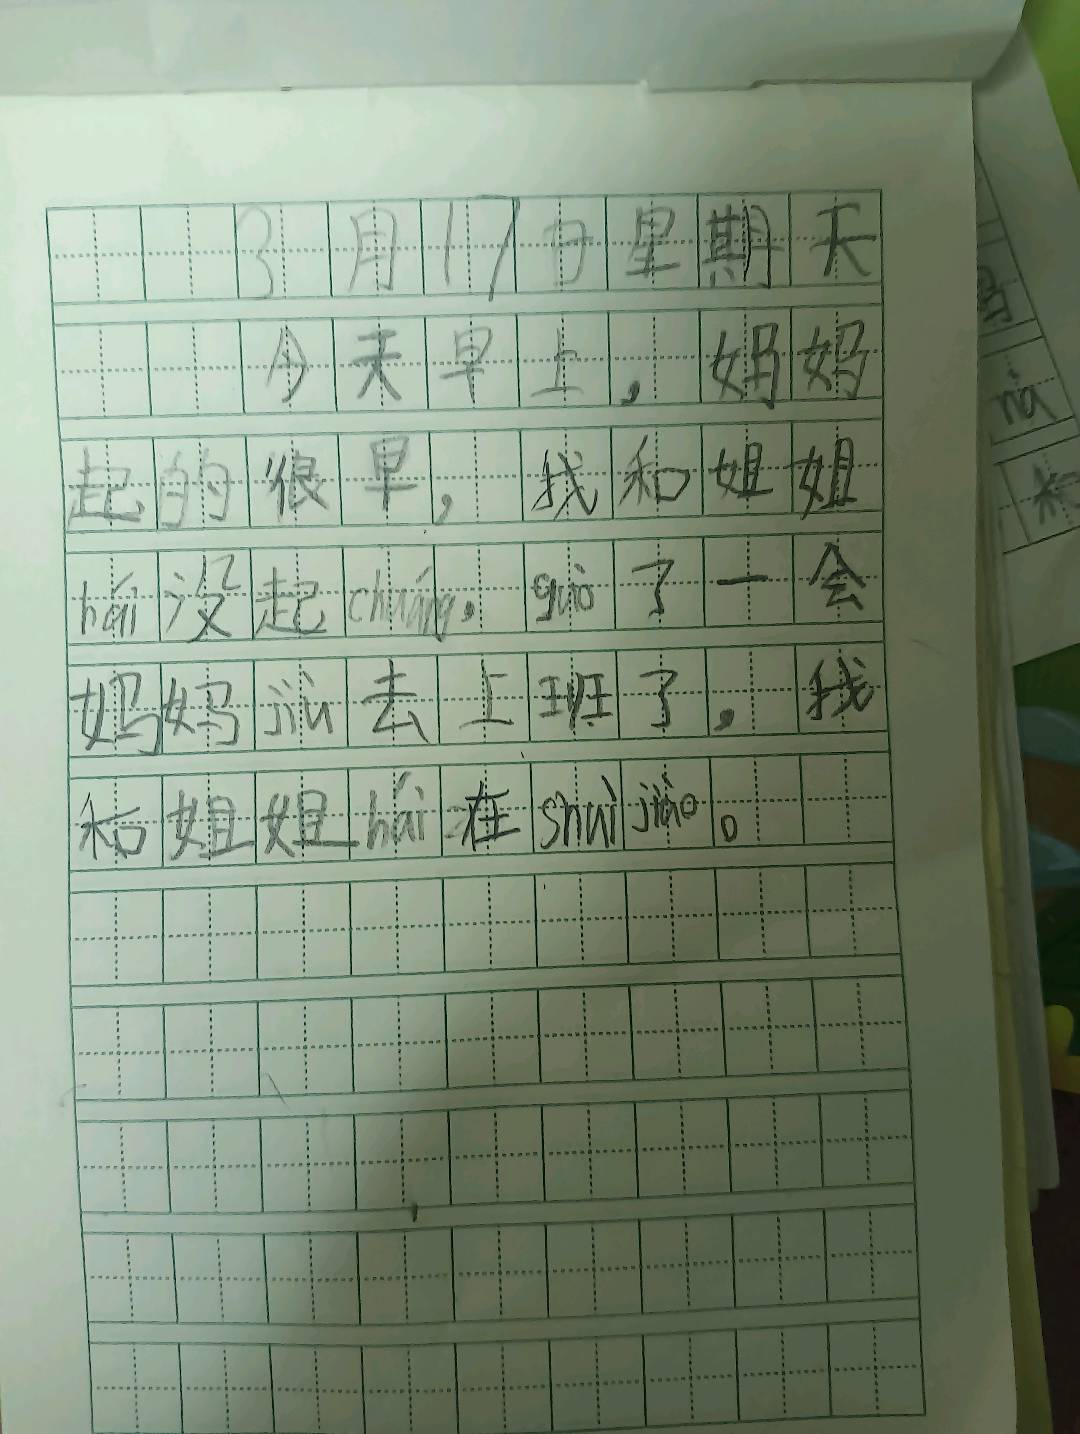 3月17日星期天
今天早上，妈妈
起的很早，我和姐姐
hái没起chuáng，guò了一会
妈妈jiù去上班了，我
和姐姐hái在shuì jiào。